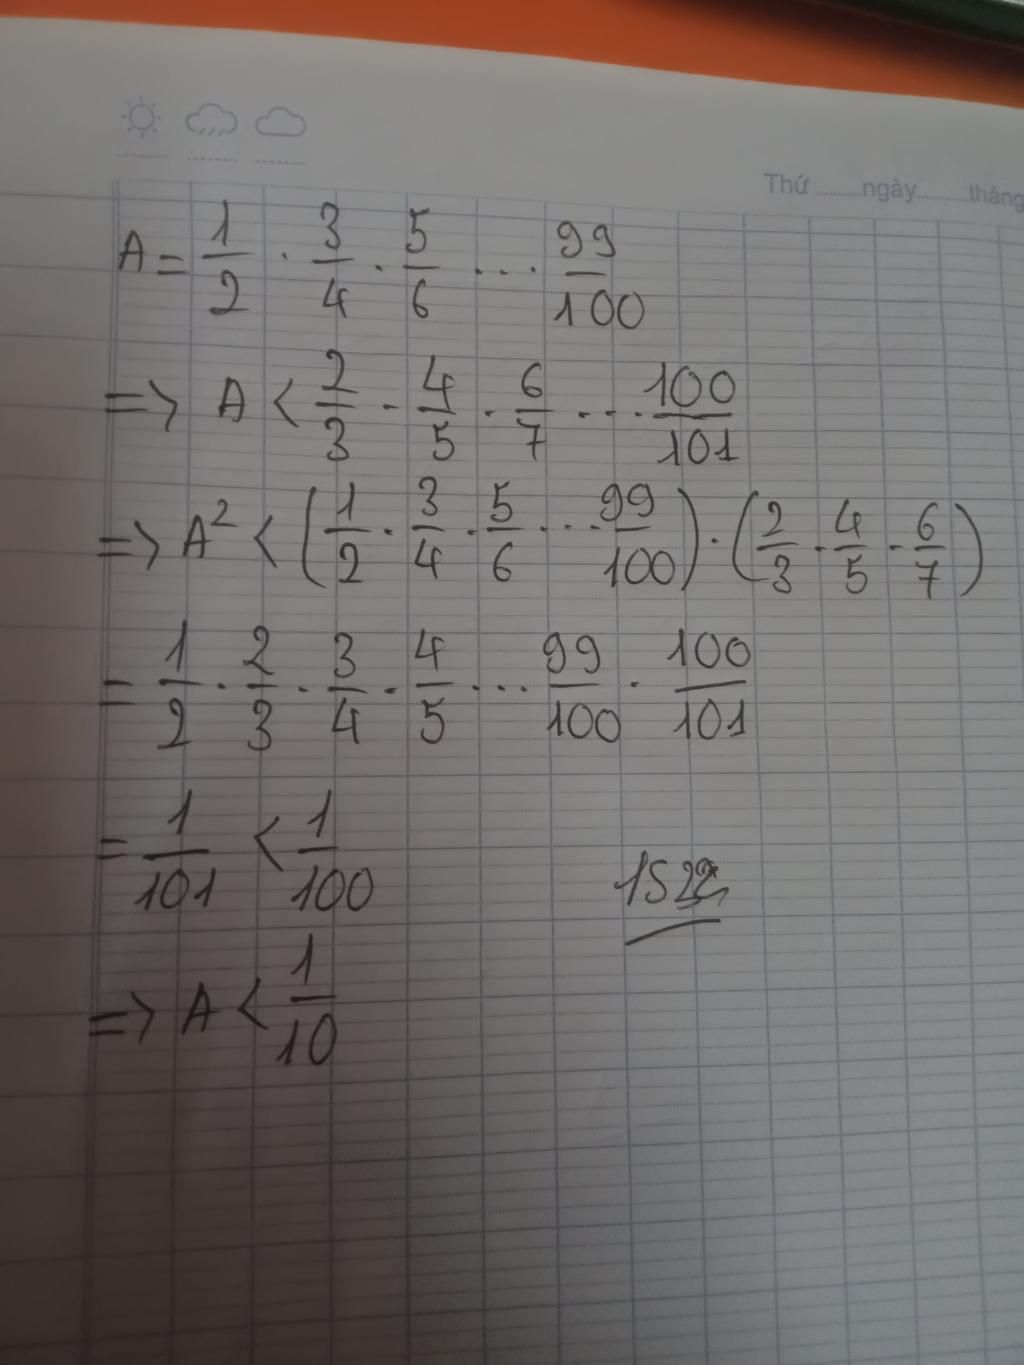 Thứ ........ngày........tháng
A = 1/2 · 3/4 · 5/6 ··· 99/100
=> A < 2/3 · 4/5 · 6/7 ··· 100/101
=> A² < (1/2 · 3/4 · 5/6 ··· 99/100) · (2/3 · 4/5 · 6/7)
= 1/2 · 2/3 · 3/4 · 4/5 ··· 99/100 · 100/101
= 1/101 < 1/100
=> A < 1/10